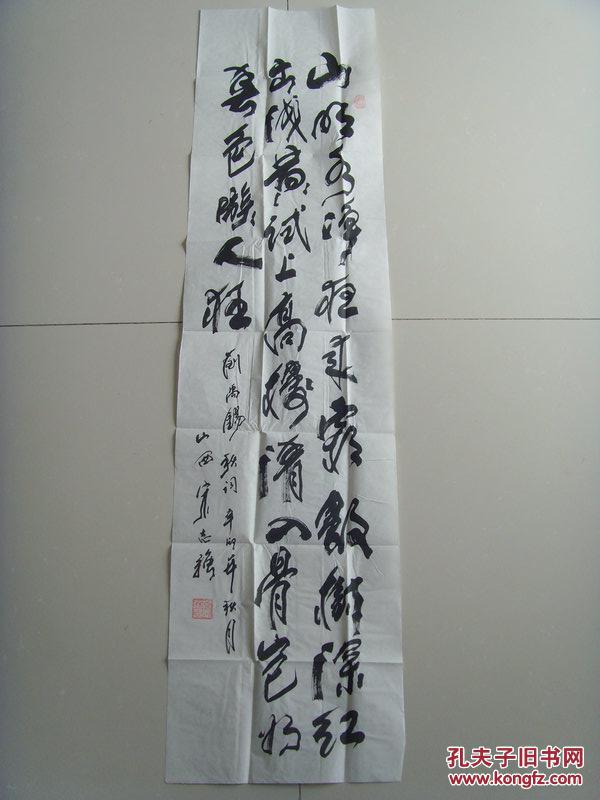 山明水净夜来霜数树深红
出浅黄试上高楼清入骨岂如
春色嗾人狂
刘禹锡秋词 辛卯年秋月
山西 志强
孔夫子旧书网
www.kongfz.com